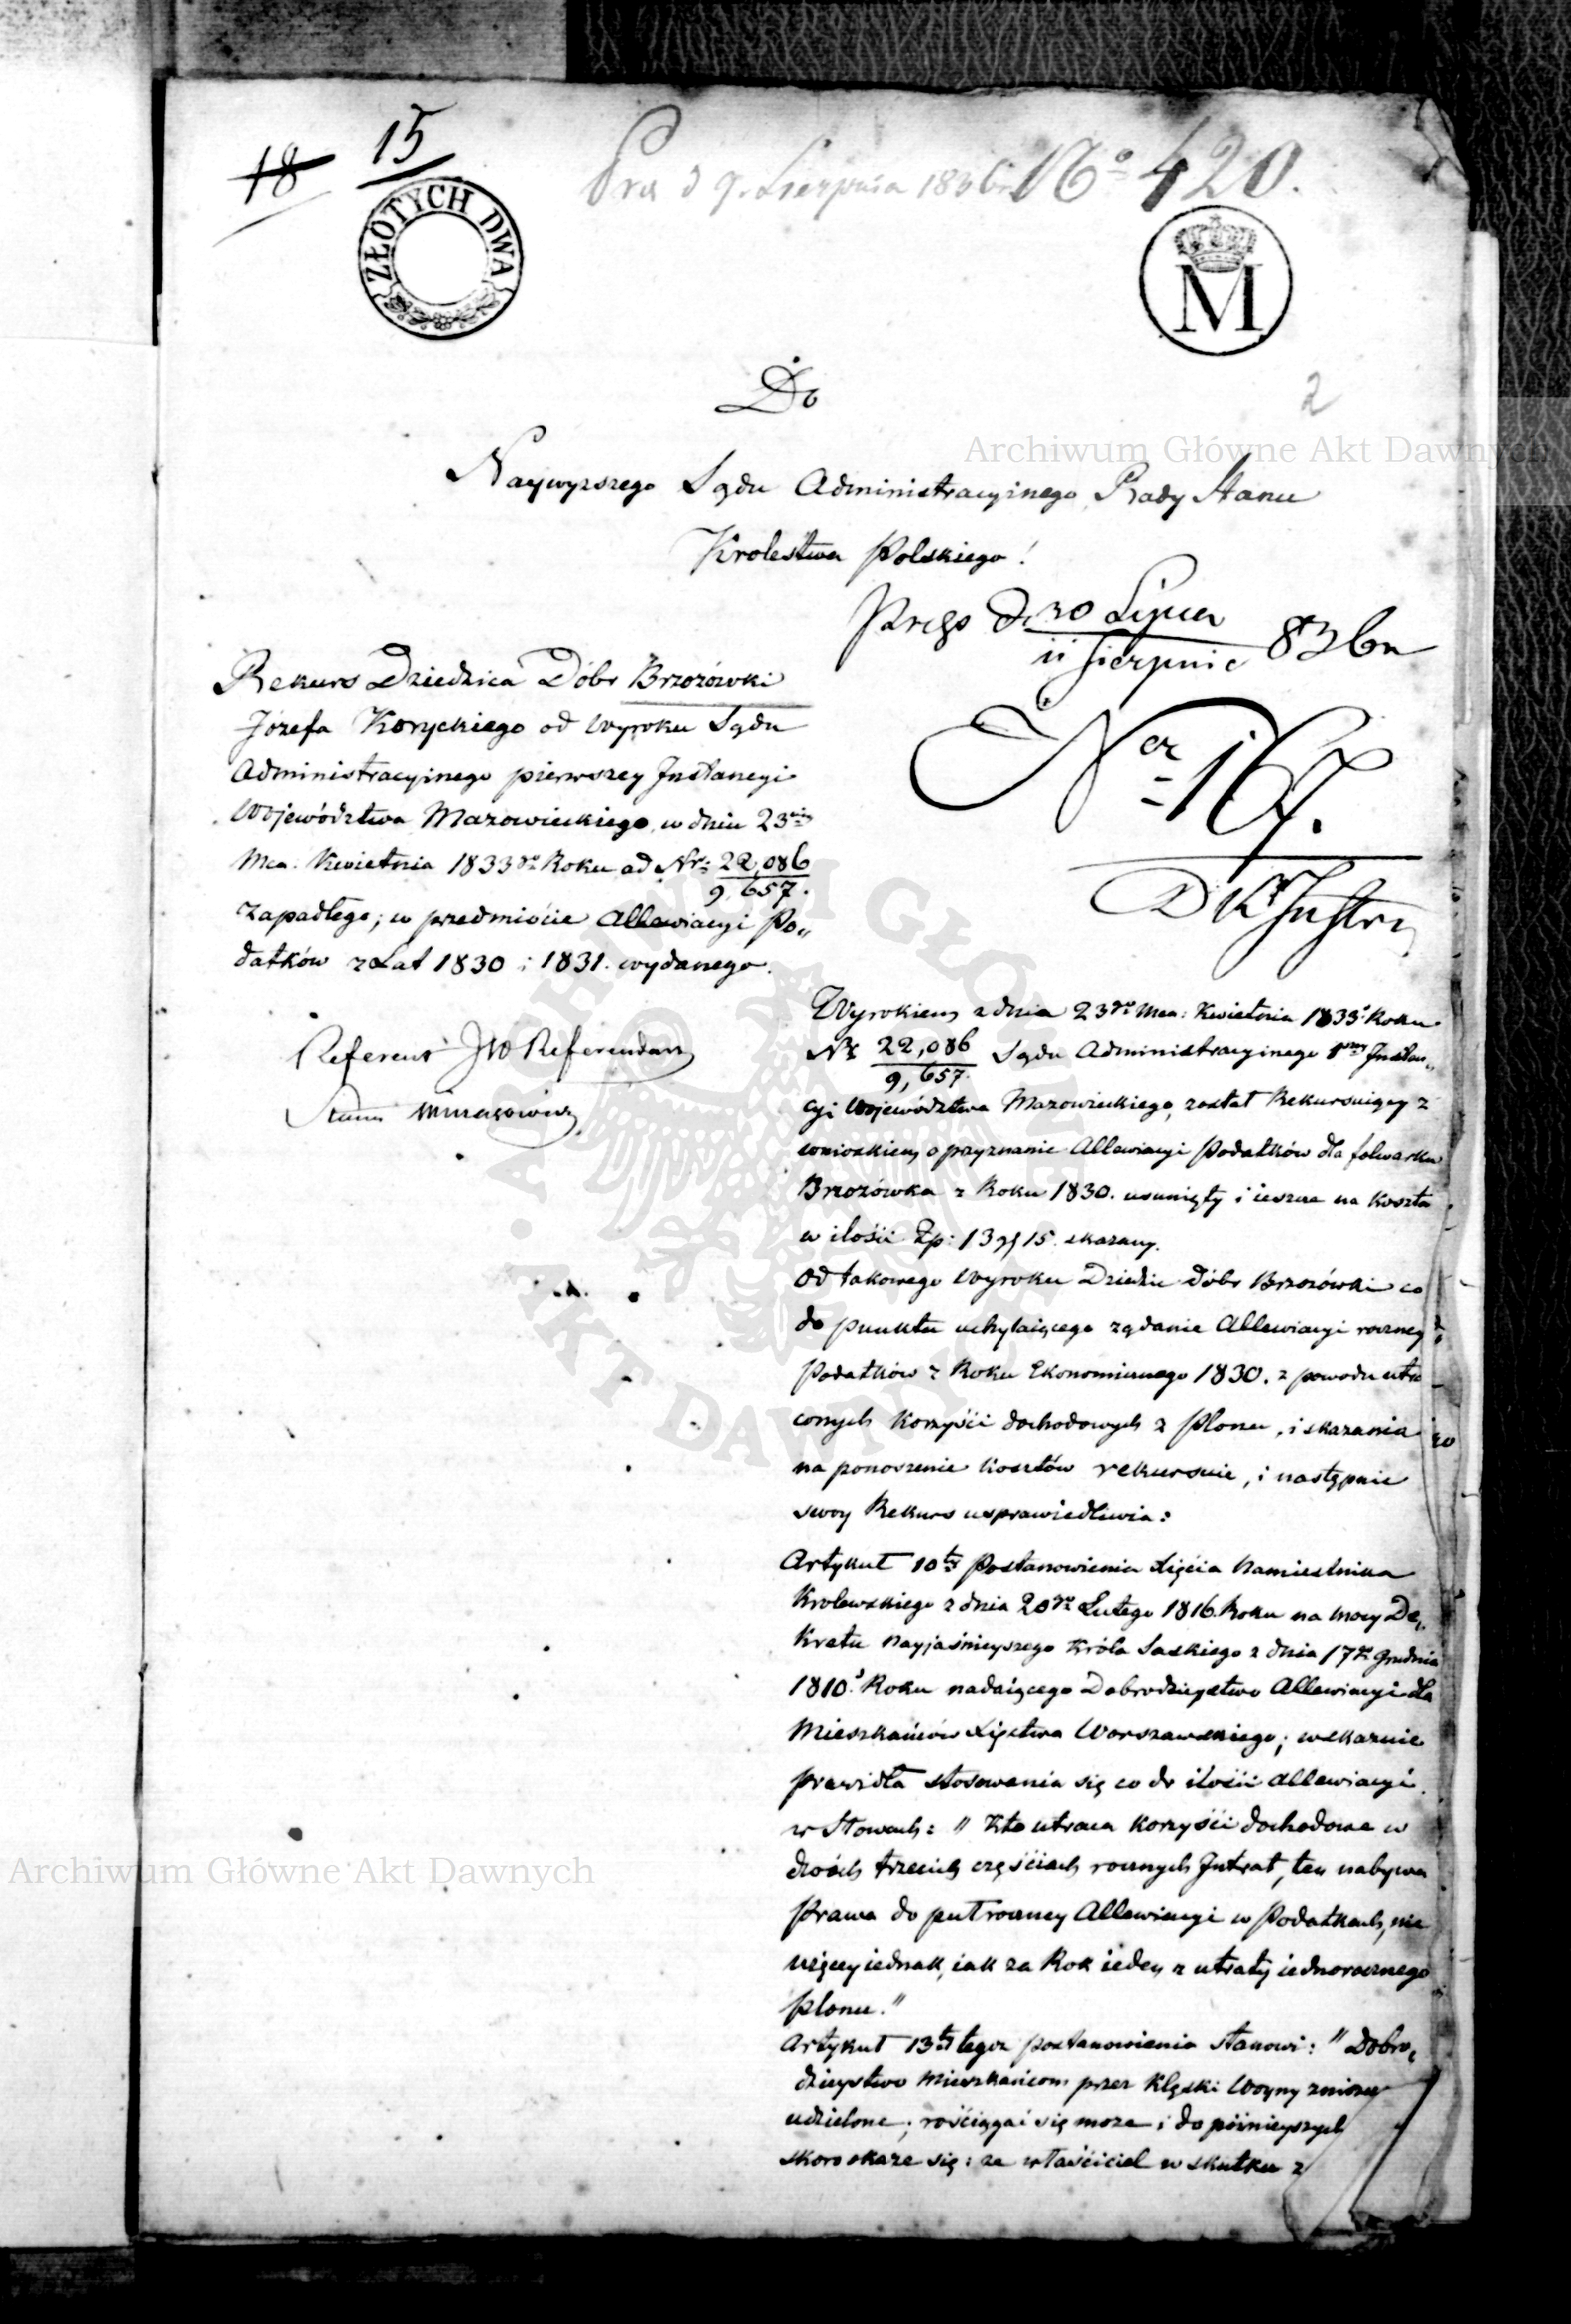 18 15
9. Sierpnia 1836 No 420.
ZŁOTYCH DWA
M
2
Do
Naywyzszego Sądu Administracyinego Rady Stanu
Krolestwa Polskiego!
d. 30 Lipca
11 Sierpnia 836
Nr 167.
Rekurs Dziedzica Dóbr Brzozówki
Józefa Koryckiego od Wyroku Sądu
Administracyinego pierwszey Instancyi
Województwa Mazowieckiego w dniu 23
Mca. Kwietnia 1833go Roku ad Nr: 22,086
9,657.
Zapadłego; w przedmiocie Allewiacyi Po„
datków z Lat 1830 i 1831. wydanego.
Referent JW Referendarz
Stanu
Wyrokiem z dnia 23go Mca: Kwietnia 1833o Roku
Nr 22,086 Sądu Administracyinego 1szey Instan„
9,657.
cyi Województwa Mazowieckiego, został Rekursuiący z
wnioskiem o przyznanie Allewiacyi Podatków dla folwarku
Brzozówka z Roku 1830. usunięty i ieszcze na koszta
w ilości Zp: 13 gr 15. skazany.
Od takowego Wyroku Dziedzic Dóbr Brzozówki co
do punktu uchylaiącego ządanie Allewiacyi roczney
Podatków z Roku Ekonomicznego 1830. z powodu utra
conych korzyści dochodowych z Plonu, i skazania
na ponoszenie kosztów rekursuie, i następnie
swoy Rekurs usprawiedliwia:
Artykuł 10ty Postanowienia Xięcia Namiestnika
Krolewskiego z dnia 20go Lutego 1816. Roku na mocy De„
kretu Nayjaśnieyszego Króla Saskiego z dnia 17go Grudnia
1810o Roku nadaiącego Dobrodzieystwo Allewiacyi dla
Mieszkańców Xięstwa Warszawskiego; wskazuie
prawidła stosowania się co do ilości Allewiacyi
w Słowach: " Kto utraca korzyści dochodowe w
dwóch trzecich częściach rocznych Intrat, ten nabywa
Prawa do puł roczney Allewiacyi w Podatkach, nie
więcey iednak, iak za Rok ieden z utraty iednorocznego
plonu."
Artykuł 13ty tegoz postanowienia stanowi: " Dobro„
dzieystwo Mieszkańcom przez klęski Woyny
udzielone; rościągać się moze i do poznieyszych
skoro okaze się: ze właściciel w skutku z
Archiwum Główne Akt Dawnych
Archiwum Główne Akt Dawnych
ARCHIWUM GŁÓWNE AKT DAWNYCH